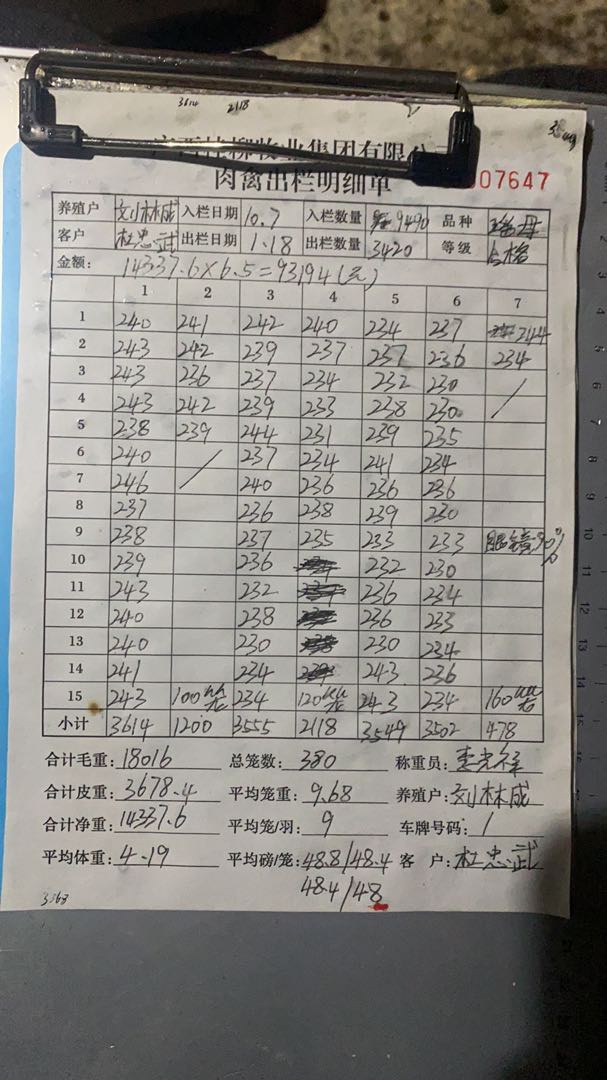 3614 2118
肉禽出栏明细单 007647
养殖户 刘林成 入栏日期 10.7 入栏数量 9490 品种
客户 杜忠武 出栏日期 1.18 出栏数量 3420 等级 合格
金额: 14337.6×6.5=93194(元)
1 2 3 4 5 6 7
1 240 241 242 240 234 237 244
2 243 242 239 237 237 236 234
3 243 236 237 234 232 230 /
4 243 242 239 233 238 230
5 238 239 244 231 239 235
6 240 / 237 234 241 234
7 246 240 236 236 236
8 237 236 238 239 230
9 238 237 235 233 233
10 239 236 232 230
11 243 232 236 234
12 240 238 236 233
13 240 230 230 234
14 241 234 243 236
15 243 100 234 120 243 234 160
小计 3614 1200 3555 2118 3549 3502 478
合计毛重: 18016 总笼数: 380 称重员:
合计皮重: 3678.4 平均笼重: 9.68 养殖户: 刘林成
合计净重: 14337.6 平均笼/羽: 9 车牌号码: /
平均体重: 4.19 平均磅/笼: 48.8/48.4 客 户: 杜忠武
48.4/48
3363